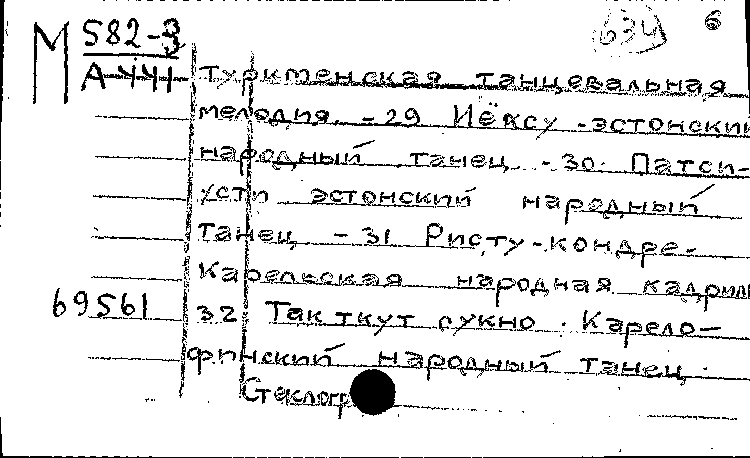 М 582-3
3
634
6
А 441
Туркменская танцевальная
мелодия. - 29 Йёксу - эстонский
народный танец. - 30. Патси-
усти эстонский народный
танец - 31 Ристу-кондре-
Карельская народная кадриль
69561 32 Так ткут сукно. Карело-
финский народный танец.
Стеклогр